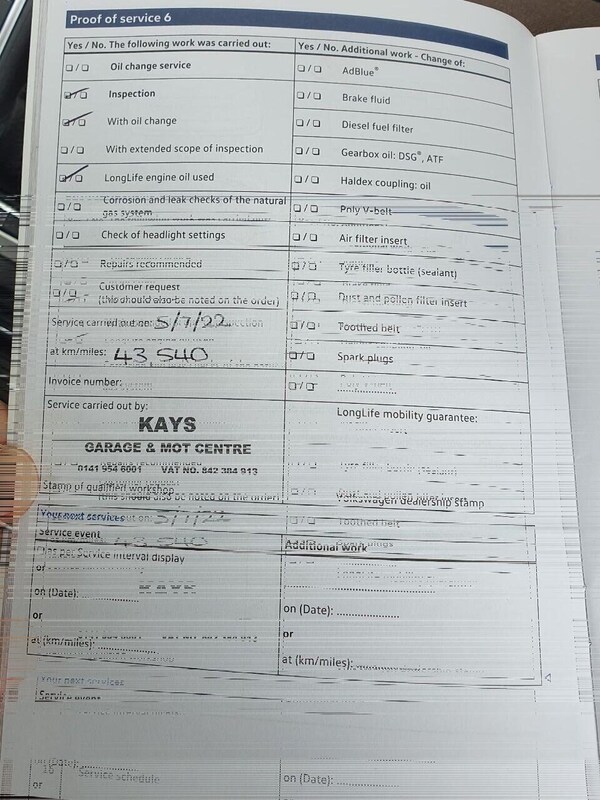 Proof of service 6
Yes / No. The following work was carried out:
Yes / No. Additional work - Change of:
Oil change service
Inspection
With oil change
With extended scope of inspection
LongLife engine oil used
Corrosion and leak checks of the natural
gas system
Check of headlight settings
Repairs recommended
Customer request
(this should also be noted on the order)
Service carried out on: 5/7/22
at km/miles: 43,540
Invoice number:
Service carried out by:
KAYS
GARAGE & MOT CENTRE
0141 954 6001 VAT NO. 842 384 913
Stamp of qualified workshop
AdBlue®
Brake fluid
Diesel fuel filter
Gearbox oil: DSG®, ATF
Haldex coupling: oil
Poly V-belt
Air filter insert
Tyre filler bottle (sealant)
Dust and pollen filter insert
Toothed belt
Spark plugs
LongLife mobility guarantee:
Volkswagen dealership stamp
Your next services
Service event
Additional work
as per Service interval display
or
on (Date):
or
at (km/miles):
on (Date):
or
at (km/miles):
Your next services
Service event
on (Date):
or
on (Date):
16
Service schedule